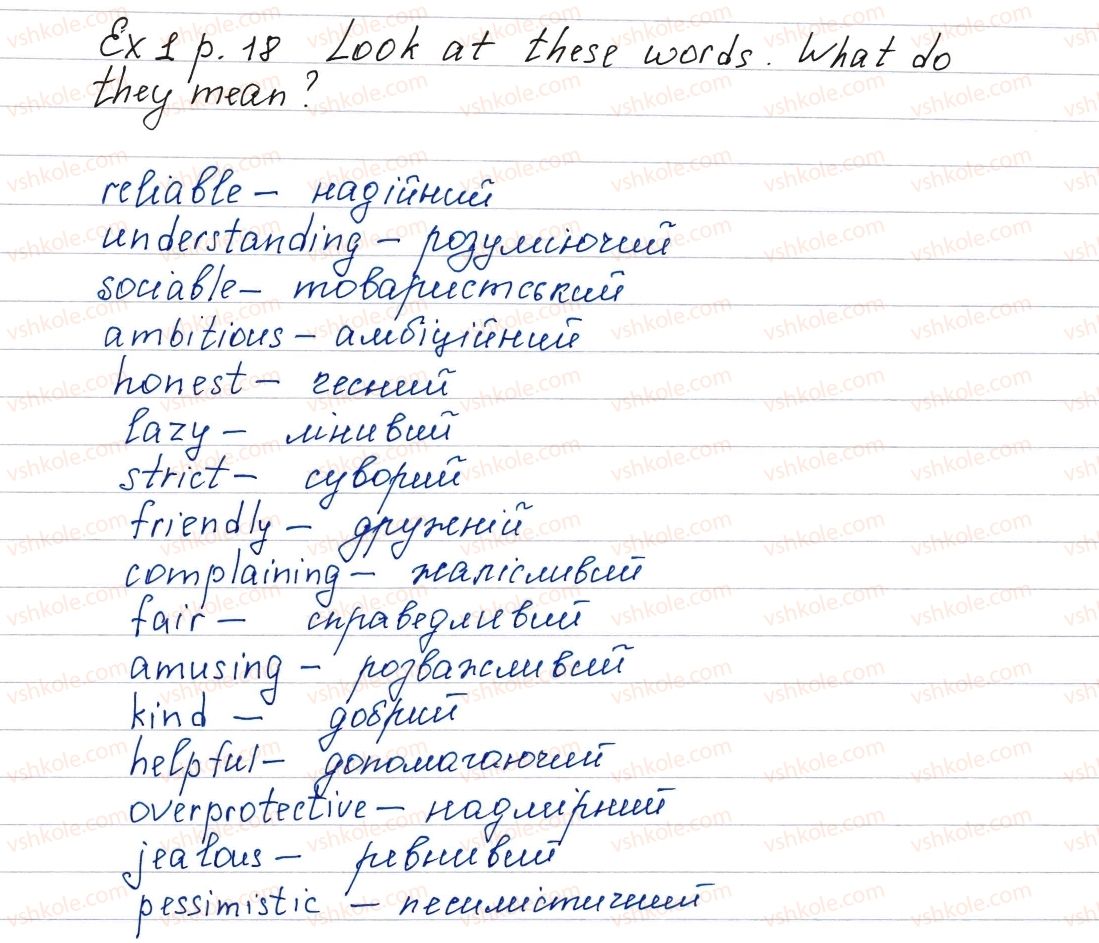 Ex 1 p. 18 Look at these words. What do
they mean?
reliable – надійний
understanding – розуміючий
sociable – товариський
ambitious – амбіційний
honest – чесний
lazy – лінивий
strict – суворий
friendly – дружній
complaining – жалісливий
fair – справедливий
amusing – розважливий
kind – добрий
helpful – допомагаючий
overprotective – надмірний
jealous – ревнивий
pessimistic – песимістичний
vshkole.com